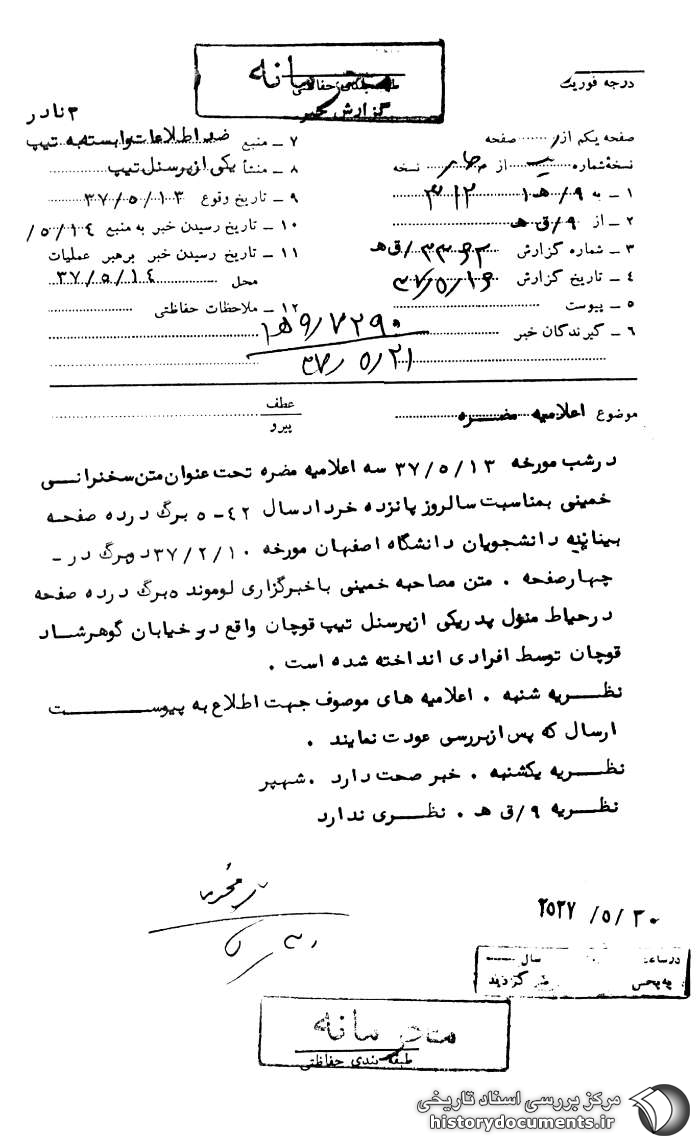 محرمانه
طبقه‌بندی حفاظتی
گزارش خبر
درجه فوریت
صفحه یکم از ۱ صفحه
نسخهٔ شماره از چهار نسخه
۱ ـ به ۹/ ﻫ ۱ ۳۱۲
۲ ـ از ۹/ق ﻫ
۳ ـ شماره گزارش /ق ﻫ
۴ ـ تاریخ گزارش ۳۷/۵/۱۶
۵ ـ پیوست
۶ ـ گیرندگان خبر
۳ نادر
۷ ـ منبع ضد اطلاعات وابسته به تیپ
۸ ـ منشأ یکی از پرسنل تیپ
۹ ـ تاریخ وقوع ۳۷/۵/۱۳
۱۰ ـ تاریخ رسیدن خبر به منبع ۵/۱۴/
۱۱ ـ تاریخ رسیدن خبر برهبر عملیات
محل ۳۷/۵/۱۴
۱۲ ـ ملاحظات حفاظتی
۷۲۹۰/۹ﻫ۱
۳۷/۵/۲۱
موضوع اعلامیه مضره
عطف
پیرو
درشب مورخه ۳۷/۵/۱۳ سه اعلامیه مضره تحت عنوان متن سخنرانی
خمینی بمناسبت سالروز پانزده خرداد سال ۴۲ـ ۵ برگ درده صفحه
بیانیه دانشجویان دانشگاه اصفهان مورخه ۳۷/۲/۱۰ دوبرگ در ـ
چهارصفحه . متن مصاحبه خمینی باخبرگزاری لوموند ۵برگ درده صفحه
درحیاط منزل پدریکی ازپرسنل تیپ قوچان واقع در خیابان گوهرشاد
قوچان توسط افرادی انداخته شده است .
نظریه شنبه . اعلامیه های موصوف جهت اطلاع به پیوست
ارسال که پس ازبررسی عودت نمایند .
نظریه یکشنبه . خبر صحت دارد . شهپر
نظریه ۹/ق ﻫ . نظری ندارد
۲۵۳۷/۵/۳۰
درساعت سال
به پخش گردید
محرمانه
طبقه بندی حفاظتی
مرکز بررسی اسناد تاریخی
historydocuments.ir